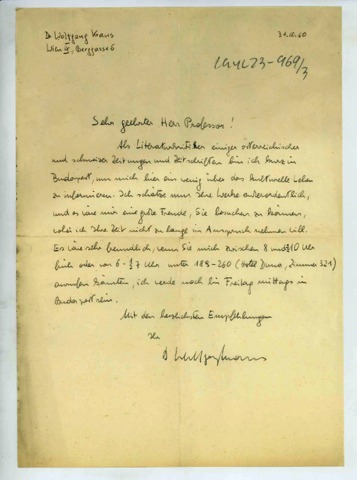 Dr Wolfgang Kraus
Wien IX, Berggasse 6
31.10.60
LGYL23-969/3
Sehr geehrter Herr Professor!
Als Literaturkritiker einiger österreichischer
und schweizer Zeitungen und Zeitschriften bin ich kurz in
Budapest, um mich hier ein wenig über das kulturelle Leben
zu informieren. Ich schätze nun Ihre Werke außerordentlich,
und es wäre mir eine große Freude, Sie besuchen zu können,
wobei ich Ihre Zeit nicht zu lange in Anspruch nehmen will.
Es wäre sehr freundlich, wenn Sie mich zwischen 8 und 10 Uhr
früh oder von 6-7 Uhr unter 188-260 (Hotel Duna, Zimmer 321)
anrufen könnten, ich werde noch bis Freitag mittags in
Budapest sein.
Mit den herzlichsten Empfehlungen
Ihr
Dr Wolfgang Kraus